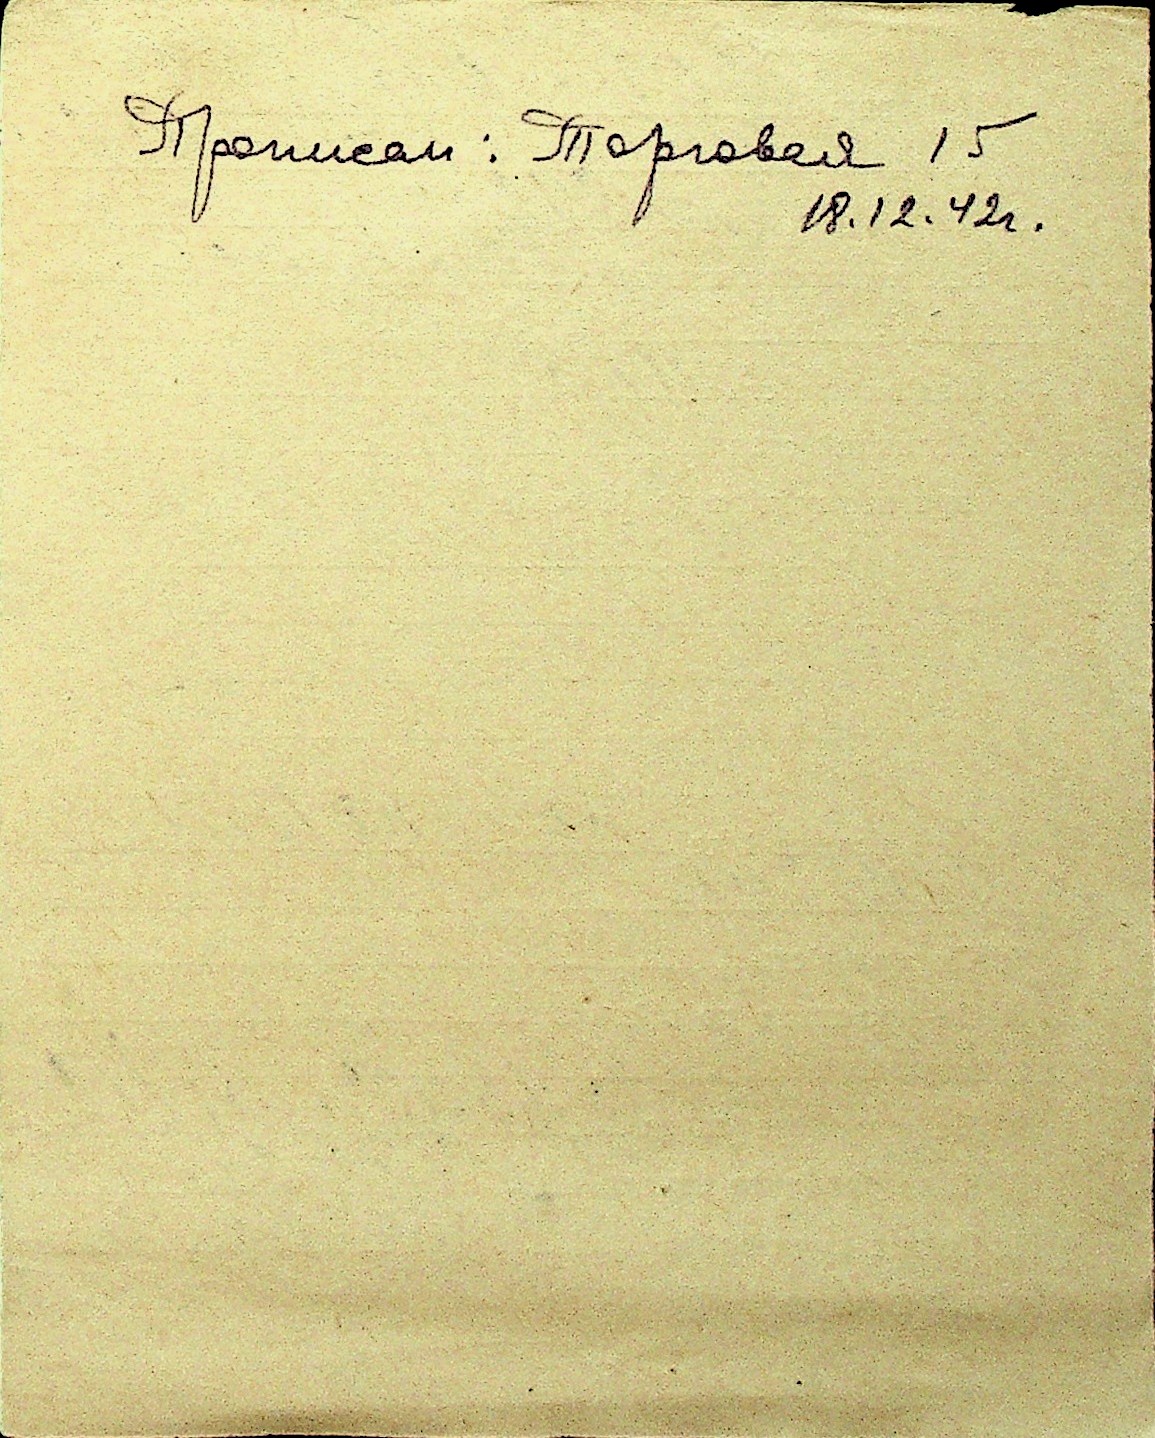 Прописан: Торговая 15
18.12.42г.